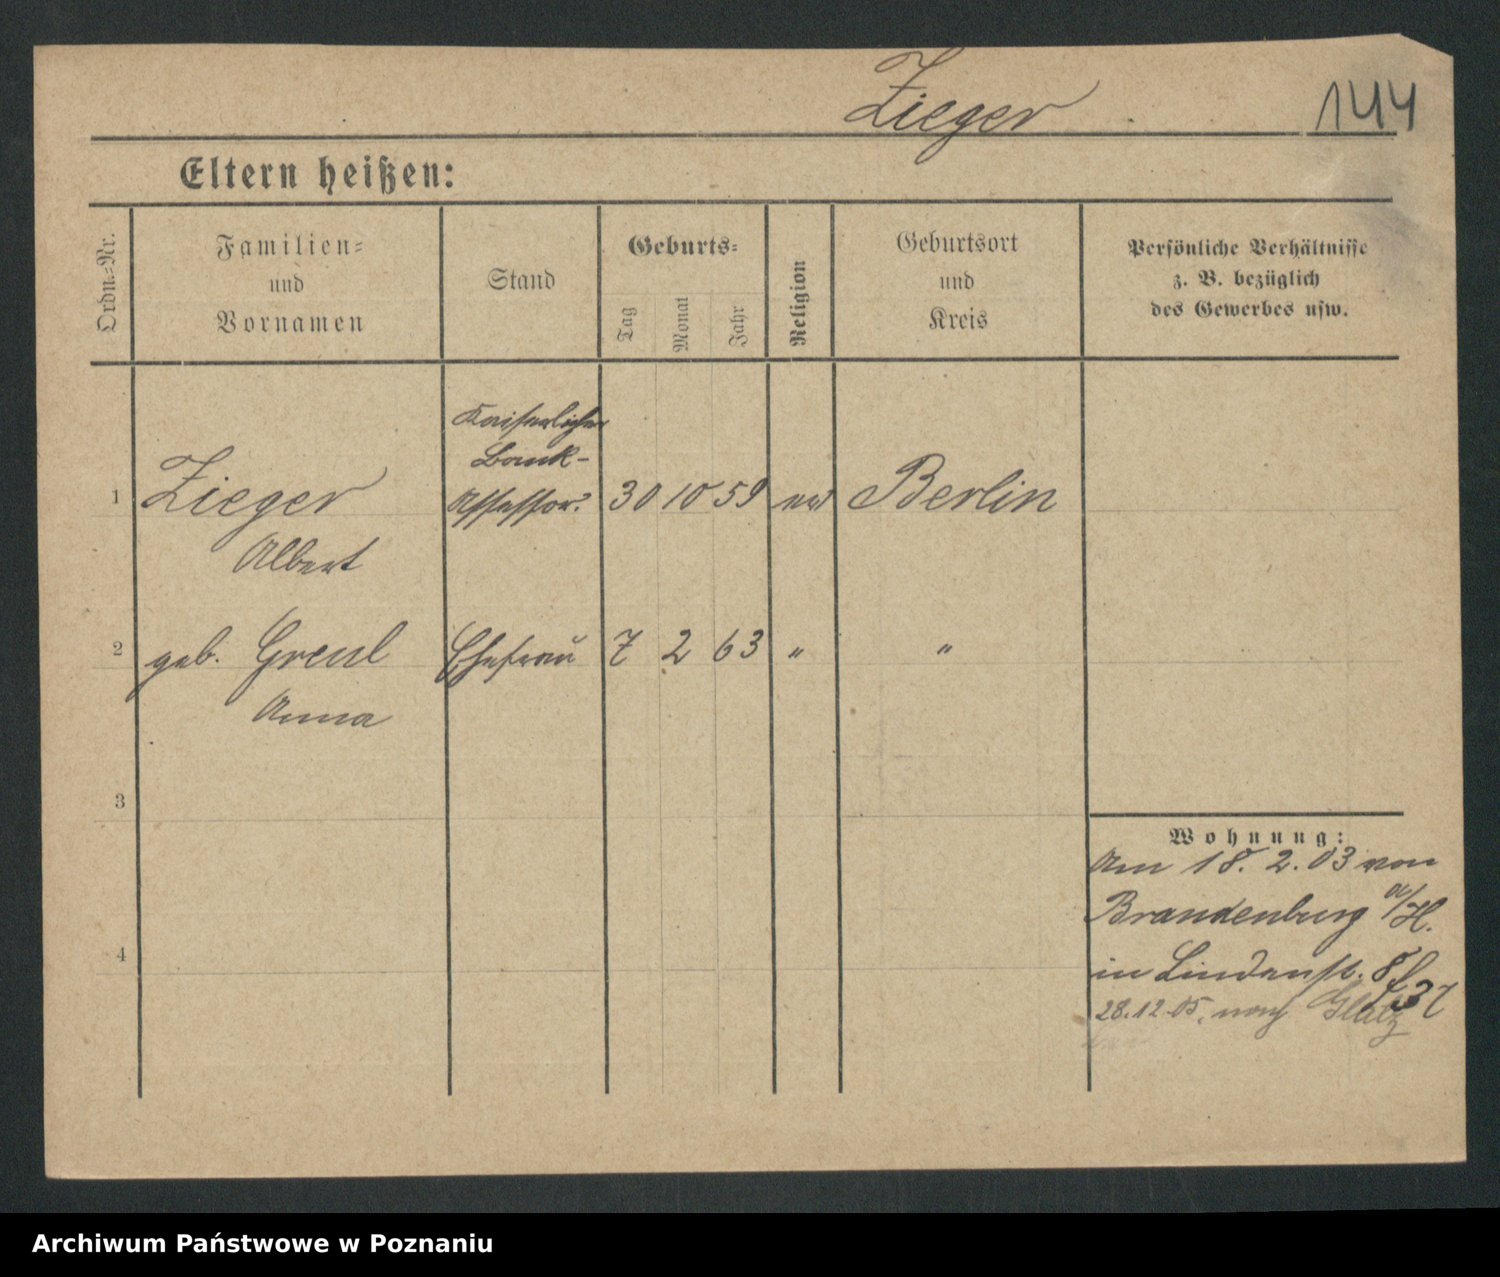 Zieger 144
Eltern heißen:
Ordn.-Nr.
Familien-
und
Vornamen
Stand
Geburts-
Tag
Monat
Jahr
Religion
Geburtsort
und
Kreis
Persönliche Verhältnisse
z. B. bezüglich
des Gewerbes usw.
Kaiserlicher
Bank-
1 Zieger Assessor. 30 10 59 ev Berlin
Albert
2 geb. Greul Ehefrau 7 2 63 " "
Anna
3
Wohnung:
Am 18. 2. 03 von
Brandenburg a/H.
4
in Lindenst. 8
28.12.05. nach Glatz